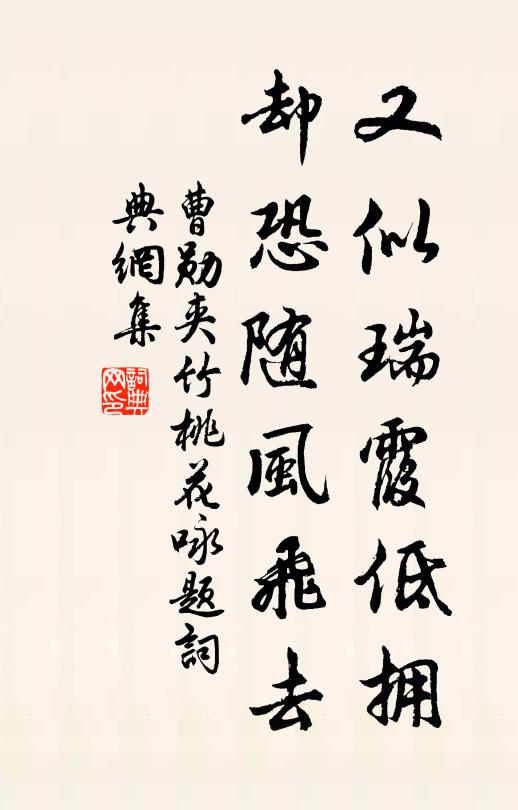 又似瑞霞低拥
却恐随風飛去
曹勋夹竹桃花咏题詞
典網集
詞典
网印